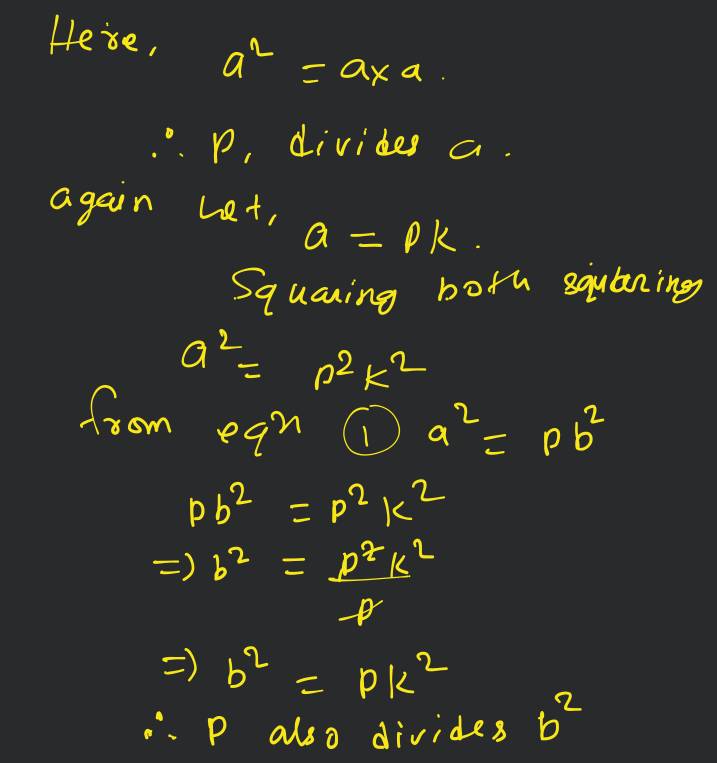 Here,
a² = a x a .
∴ P, divides a .
again Let,
a = pk .
Squaring both squaring
a² = p²k²
from eqn ① a² = pb²
pb² = p²k²
=> b² = p²k²
p
=> b² = pk²
∴ P also divides b²